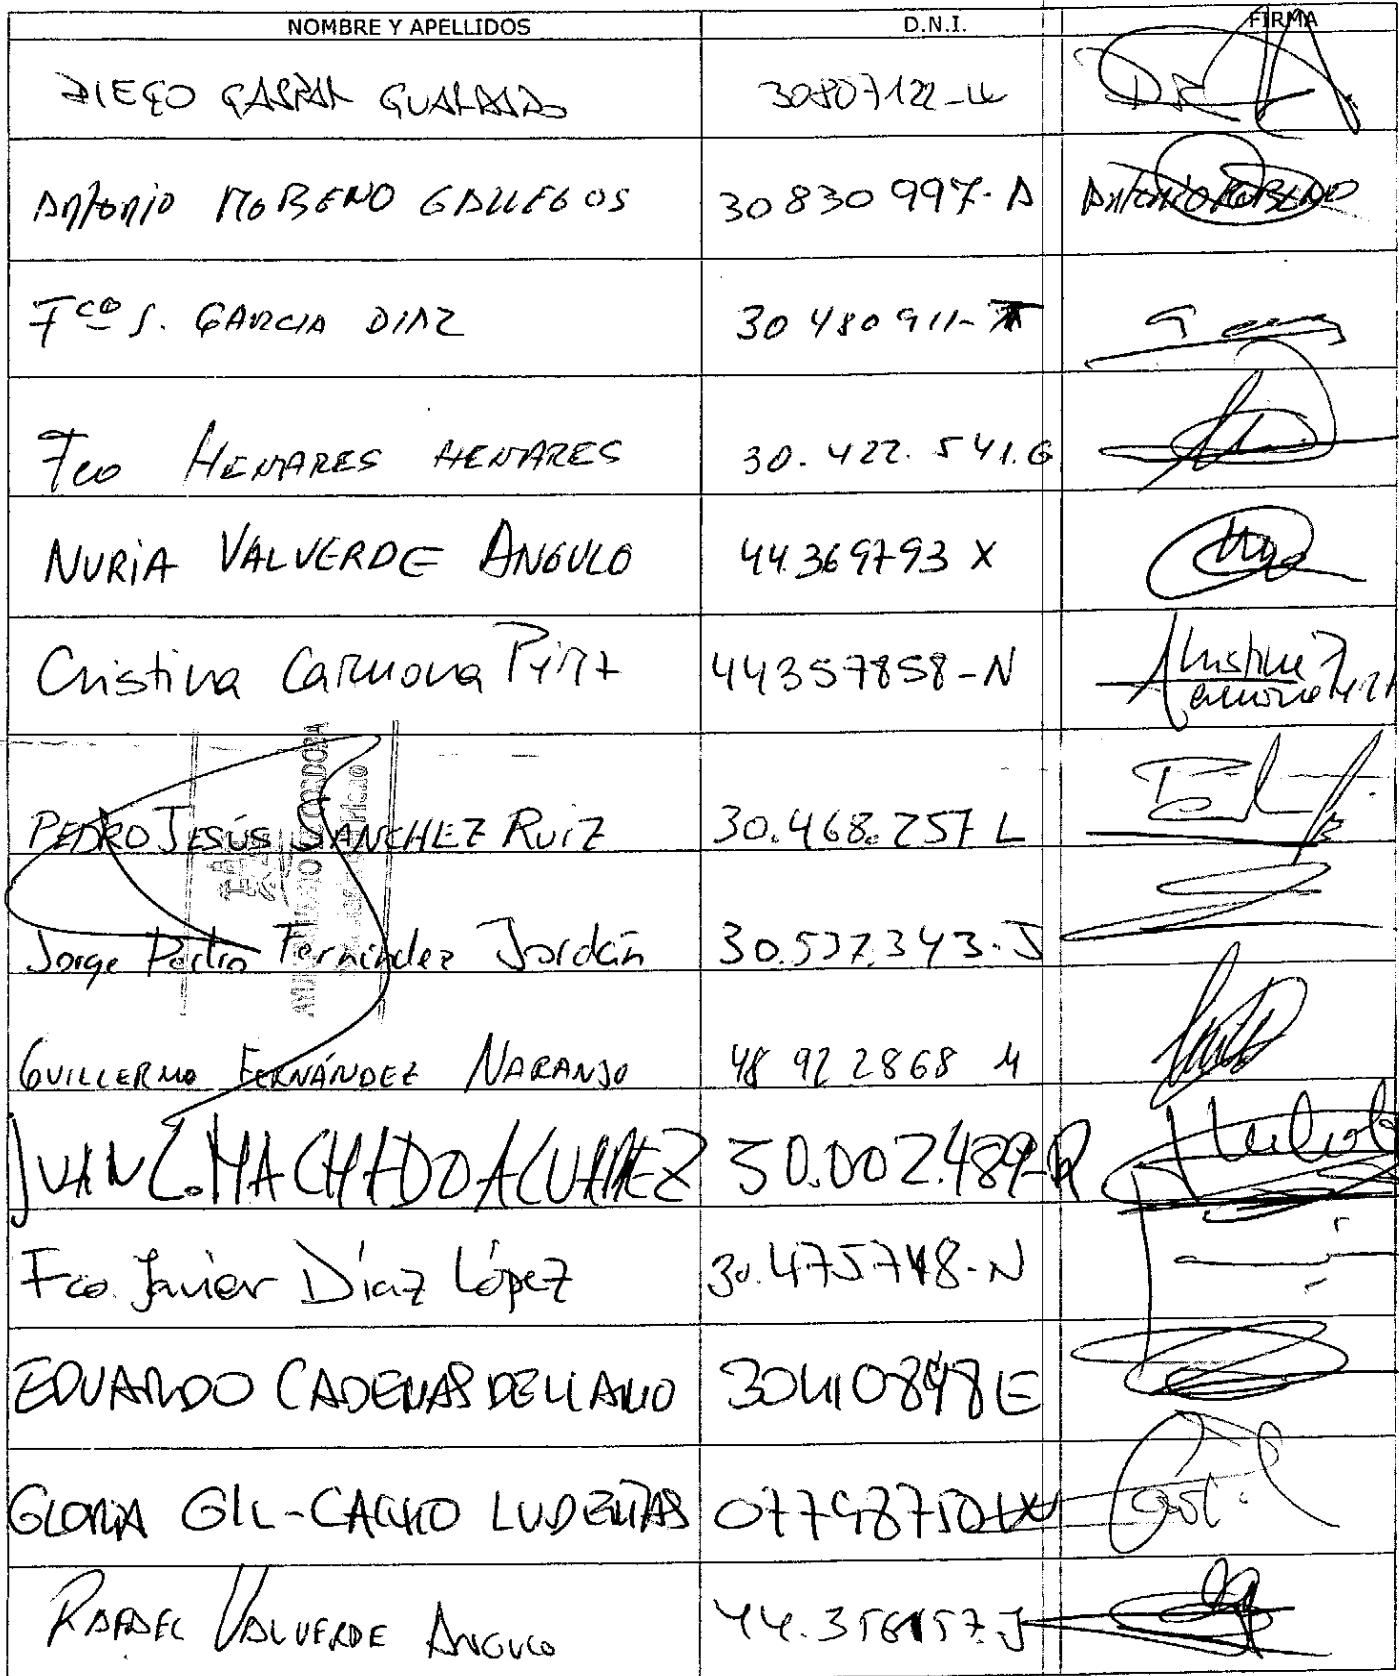 NOMBRE Y APELLIDOS D.N.I. FIRMA
DIEGO GASPAR GUALDADO 30807122-W
Antonio MORENO GALLEGOS 30830997-A Antonio MORENO
Fco S. GARCIA DIAZ 30480911-
Fco HENARES HENARES 30.422.541.G
NURIA VALVERDE ANGULO 44369793 X
Cristina Carmona 44357858-N Cristina Carmona
PEDRO JESÚS SANCHEZ RUIZ 30.468.257 L
Jorge Pedro Fernández Jordán 30.537.343-J
GUILLERMO FERNÁNDEZ NARANJO 48 922868 M
JUAN C. MACHADO ALVAREZ 30.002.489-R
Fco. Javier Díaz López 30.475748-N
EDUARDO CADENAS DE LLANO 30410848E
GLORIA GIL-CACHO
RAFAEL VALVERDE ANGULO